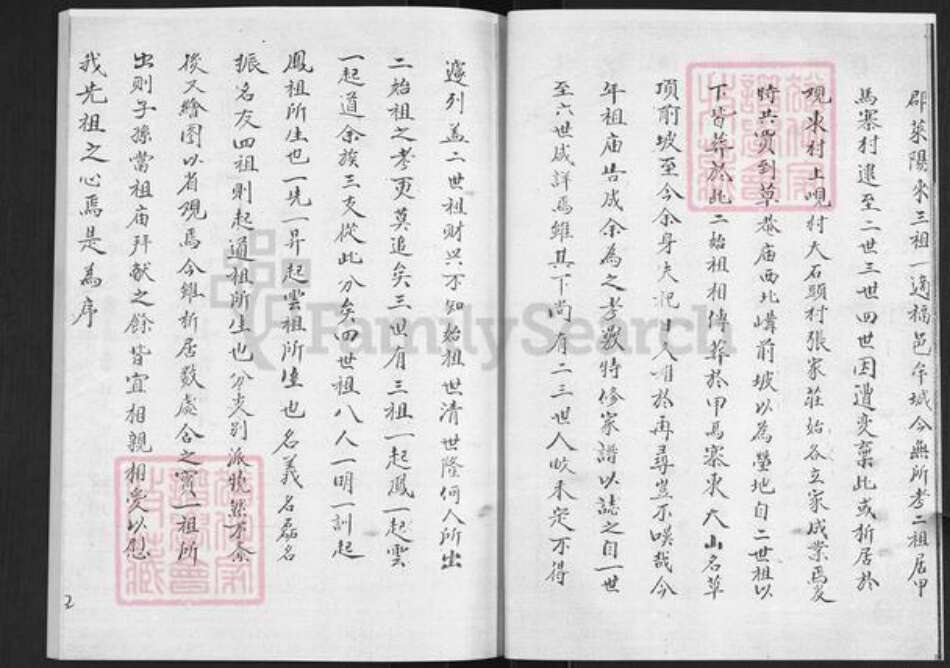 郡萊陽來三祖一適福邑午城今無所考二祖居甲
馬寨村逮至二世三世四世因遭变棄此或析居於
峴岽村上峴村大石頭村張家莊始各立家成業焉爰
時共買到草菴庙西北嵴前坡以為塋地自二世祖以
下皆葬於此二始祖相傳葬於甲馬寨岽大山名草
項前坡至今余身失祀日久难於再尋豈不嘆哉今
年祖庙告成余為之考覈特修家譜以誌之自一世
至六世咸詳焉維其下尚有二三世人畋未定不得
遽列盖二世祖财兴不知始祖世清世隆何人所出
二始祖之孝更莫追矣三世有三祖一起鳳一起雲
一起道余族三支從此分矣四世祖八人一明一訓起
鳳祖所生也一先一昇起雲祖所生也名義名磊名
振名友四祖則起道祖所生也分炎别派貌
後又繪图以省观焉今雖析居数處合之實一祖所
出則子孫當祖庙拜献之餘皆宜相親相爱以慰
我先祖之心焉是為序
2
FamilySearch